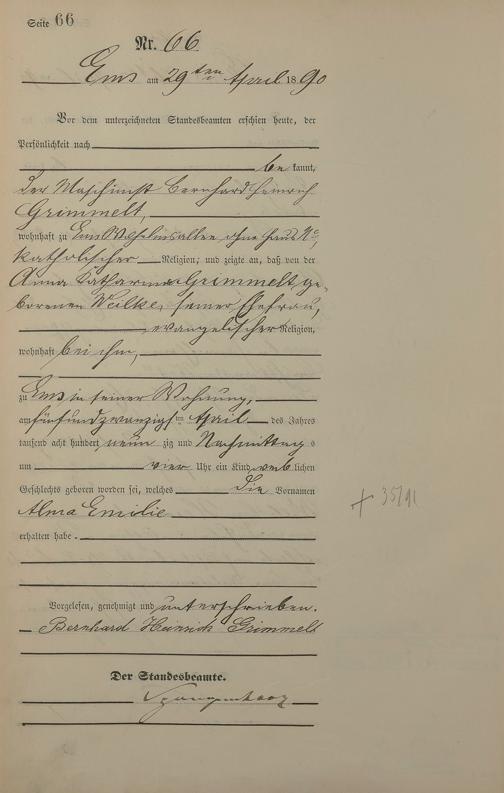 Seite 66
Nr. 66
Ems am 29ten April 1890
Vor dem unterzeichneten Standesbeamten erschien heute, der
Persönlichkeit nach
be kannt,
der Maschinist Bernhard Heinrich
Grimmelt,
wohnhaft zu Ems Wilhelmsallee ohne Haus No,
katholischer Religion; und zeigte an, daß von der
Anna Catharina Grimmelt, ge-
borenen Weilke, seiner Ehefrau,
evangelischer Religion,
wohnhaft bei ihm,
zu Ems in seiner Wohnung,
am fünfundzwanzigsten April des Jahres
tausend acht hundert neun zig und Nachmittag s
um vier Uhr ein Kind weib lichen
Geschlechts geboren worden sei, welches die Vornamen
Alma Emilie
erhalten habe.
+ 35/91
Vorgelesen, genehmigt und unterschrieben.
Bernhard Heinrich Grimmelt
Der Standesbeamte.